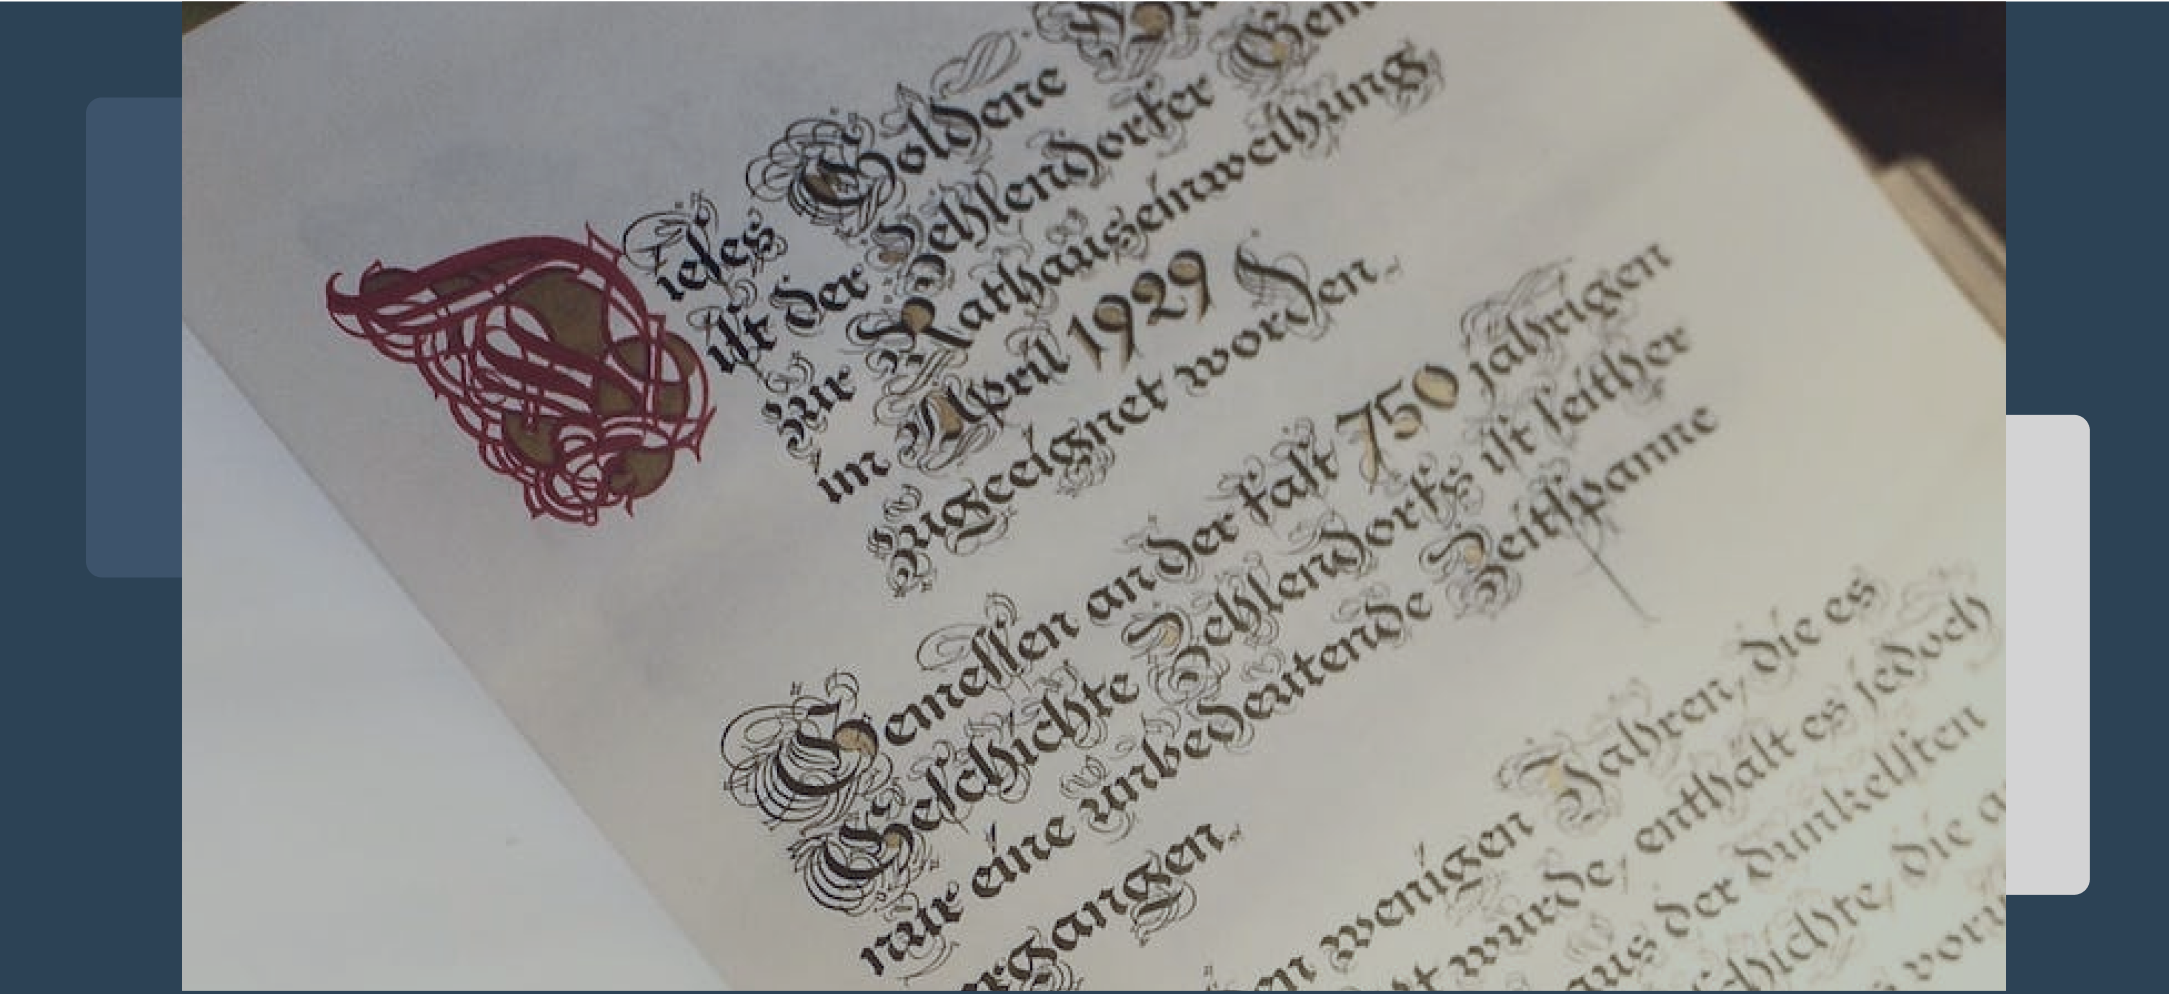 Dieses Goldene
ist der Zehlendorfer Gem
zur Rathauseinweihung
im April 1929
zugeeignet worden.
Gemessen an der fast 750 jährigen
Geschichte Zehlendorfs ist seither
nur eine unbedeutende Zeitspanne
ergangen.
en wenigen Jahren, die es
t wurde, enthält es jedoch
aus der dunkelsten
schichte, die a
s voru